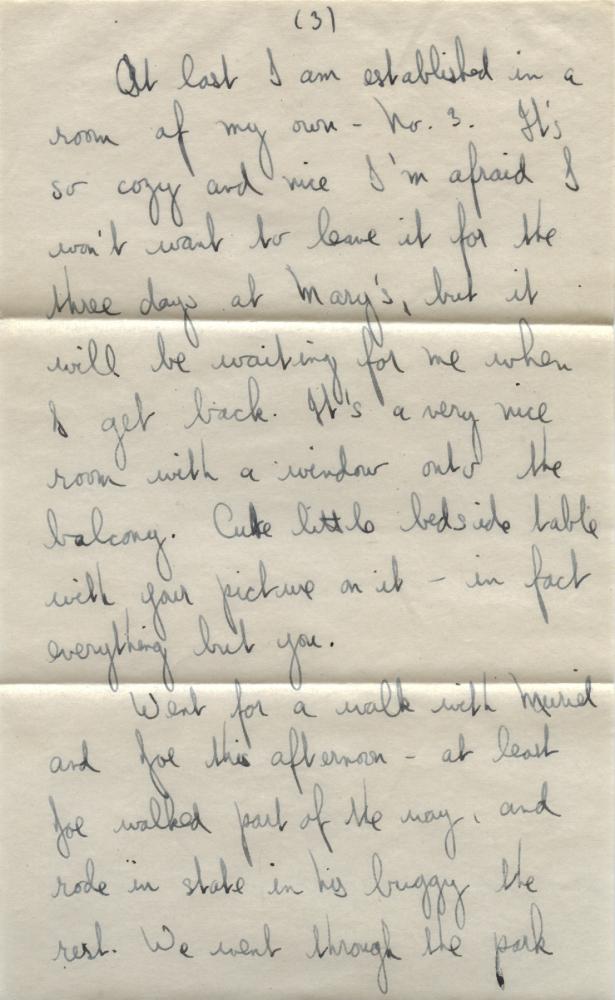 (3)
At last I am established in a
room of my own - No. 3. It's
so cozy and nice I'm afraid I
won't want to leave it for the
three days at Mary's, but it
will be waiting for me when
I get back. It's a very nice
room with a window onto the
balcony. Cute little bedside table
with your picture on it - in fact
everything but you.
Went for a walk with Muriel
and Joe this afternoon - at least
Joe walked part of the way, and
rode in state in his buggy the
rest. We went through the park